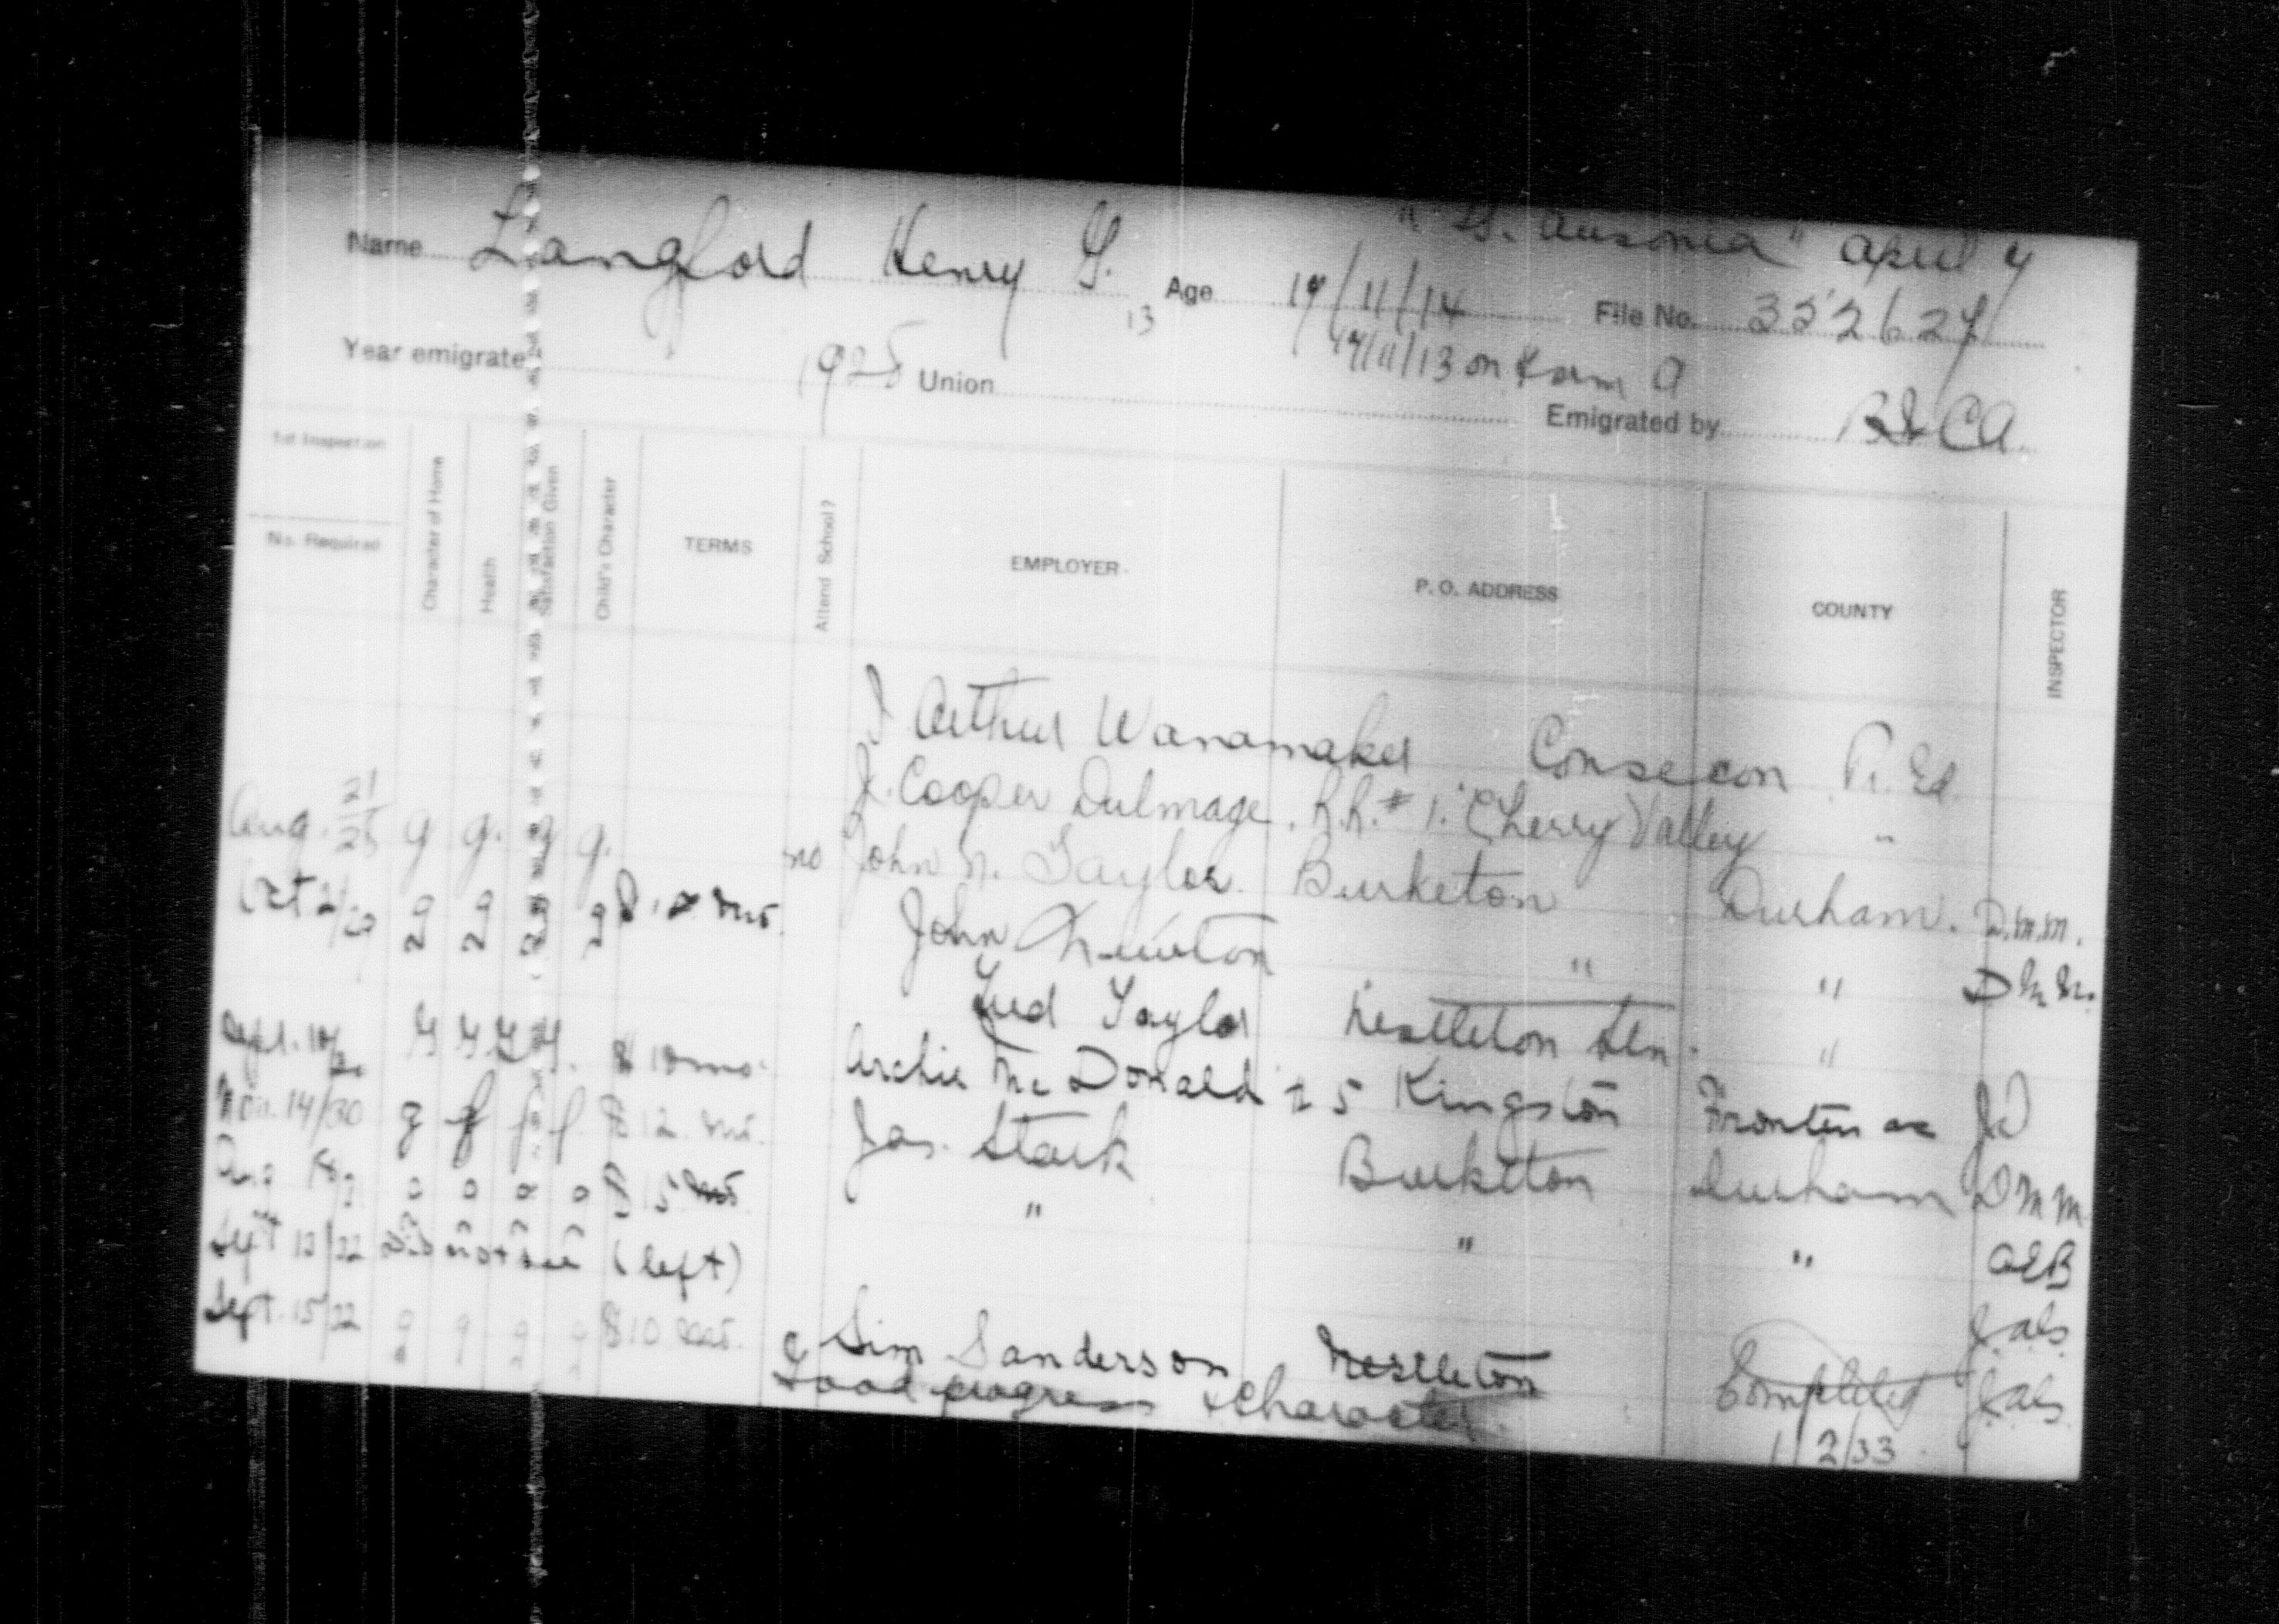 "Ausonia" April 4
Name Langford Henry G. Age 17/11/14 File No. 352627
13 17/11/13 on Form A
Year emigrated 1925 Union Emigrated by B&CA
1st Inspection
No. Required Character of Home Health Satisfaction Given Child's Character TERMS Attend School? EMPLOYER P. O. ADDRESS COUNTY INSPECTOR
J Arthur Wanamaker Consecon P. Ed
J. Cooper Dulmage. R.R. # 1. Cherry Valley "
Aug. 21/25 g g. g g. no John N. Taylor. Burketon Durham. D.M.M.
Oct g g g g mo. John Newton " " D M M.
Fred Taylor Nestleton Stn. "
Sept. G G G G. $ 10 mo. Archie McDonald # 5 Kingston Frontenac
Nov. 14/30 g f f f $ 12. mo. Jas. Stark Burketon Durham D M M
Aug g g g g $ 15 mo " " " OEB
Sept 13/32 Did not see (left) J.als.
Sept. 15/32 g g g g $10 mo. Sim Sanderson Nestleton Completed J.als.
Good progress & Character. 1/2/33